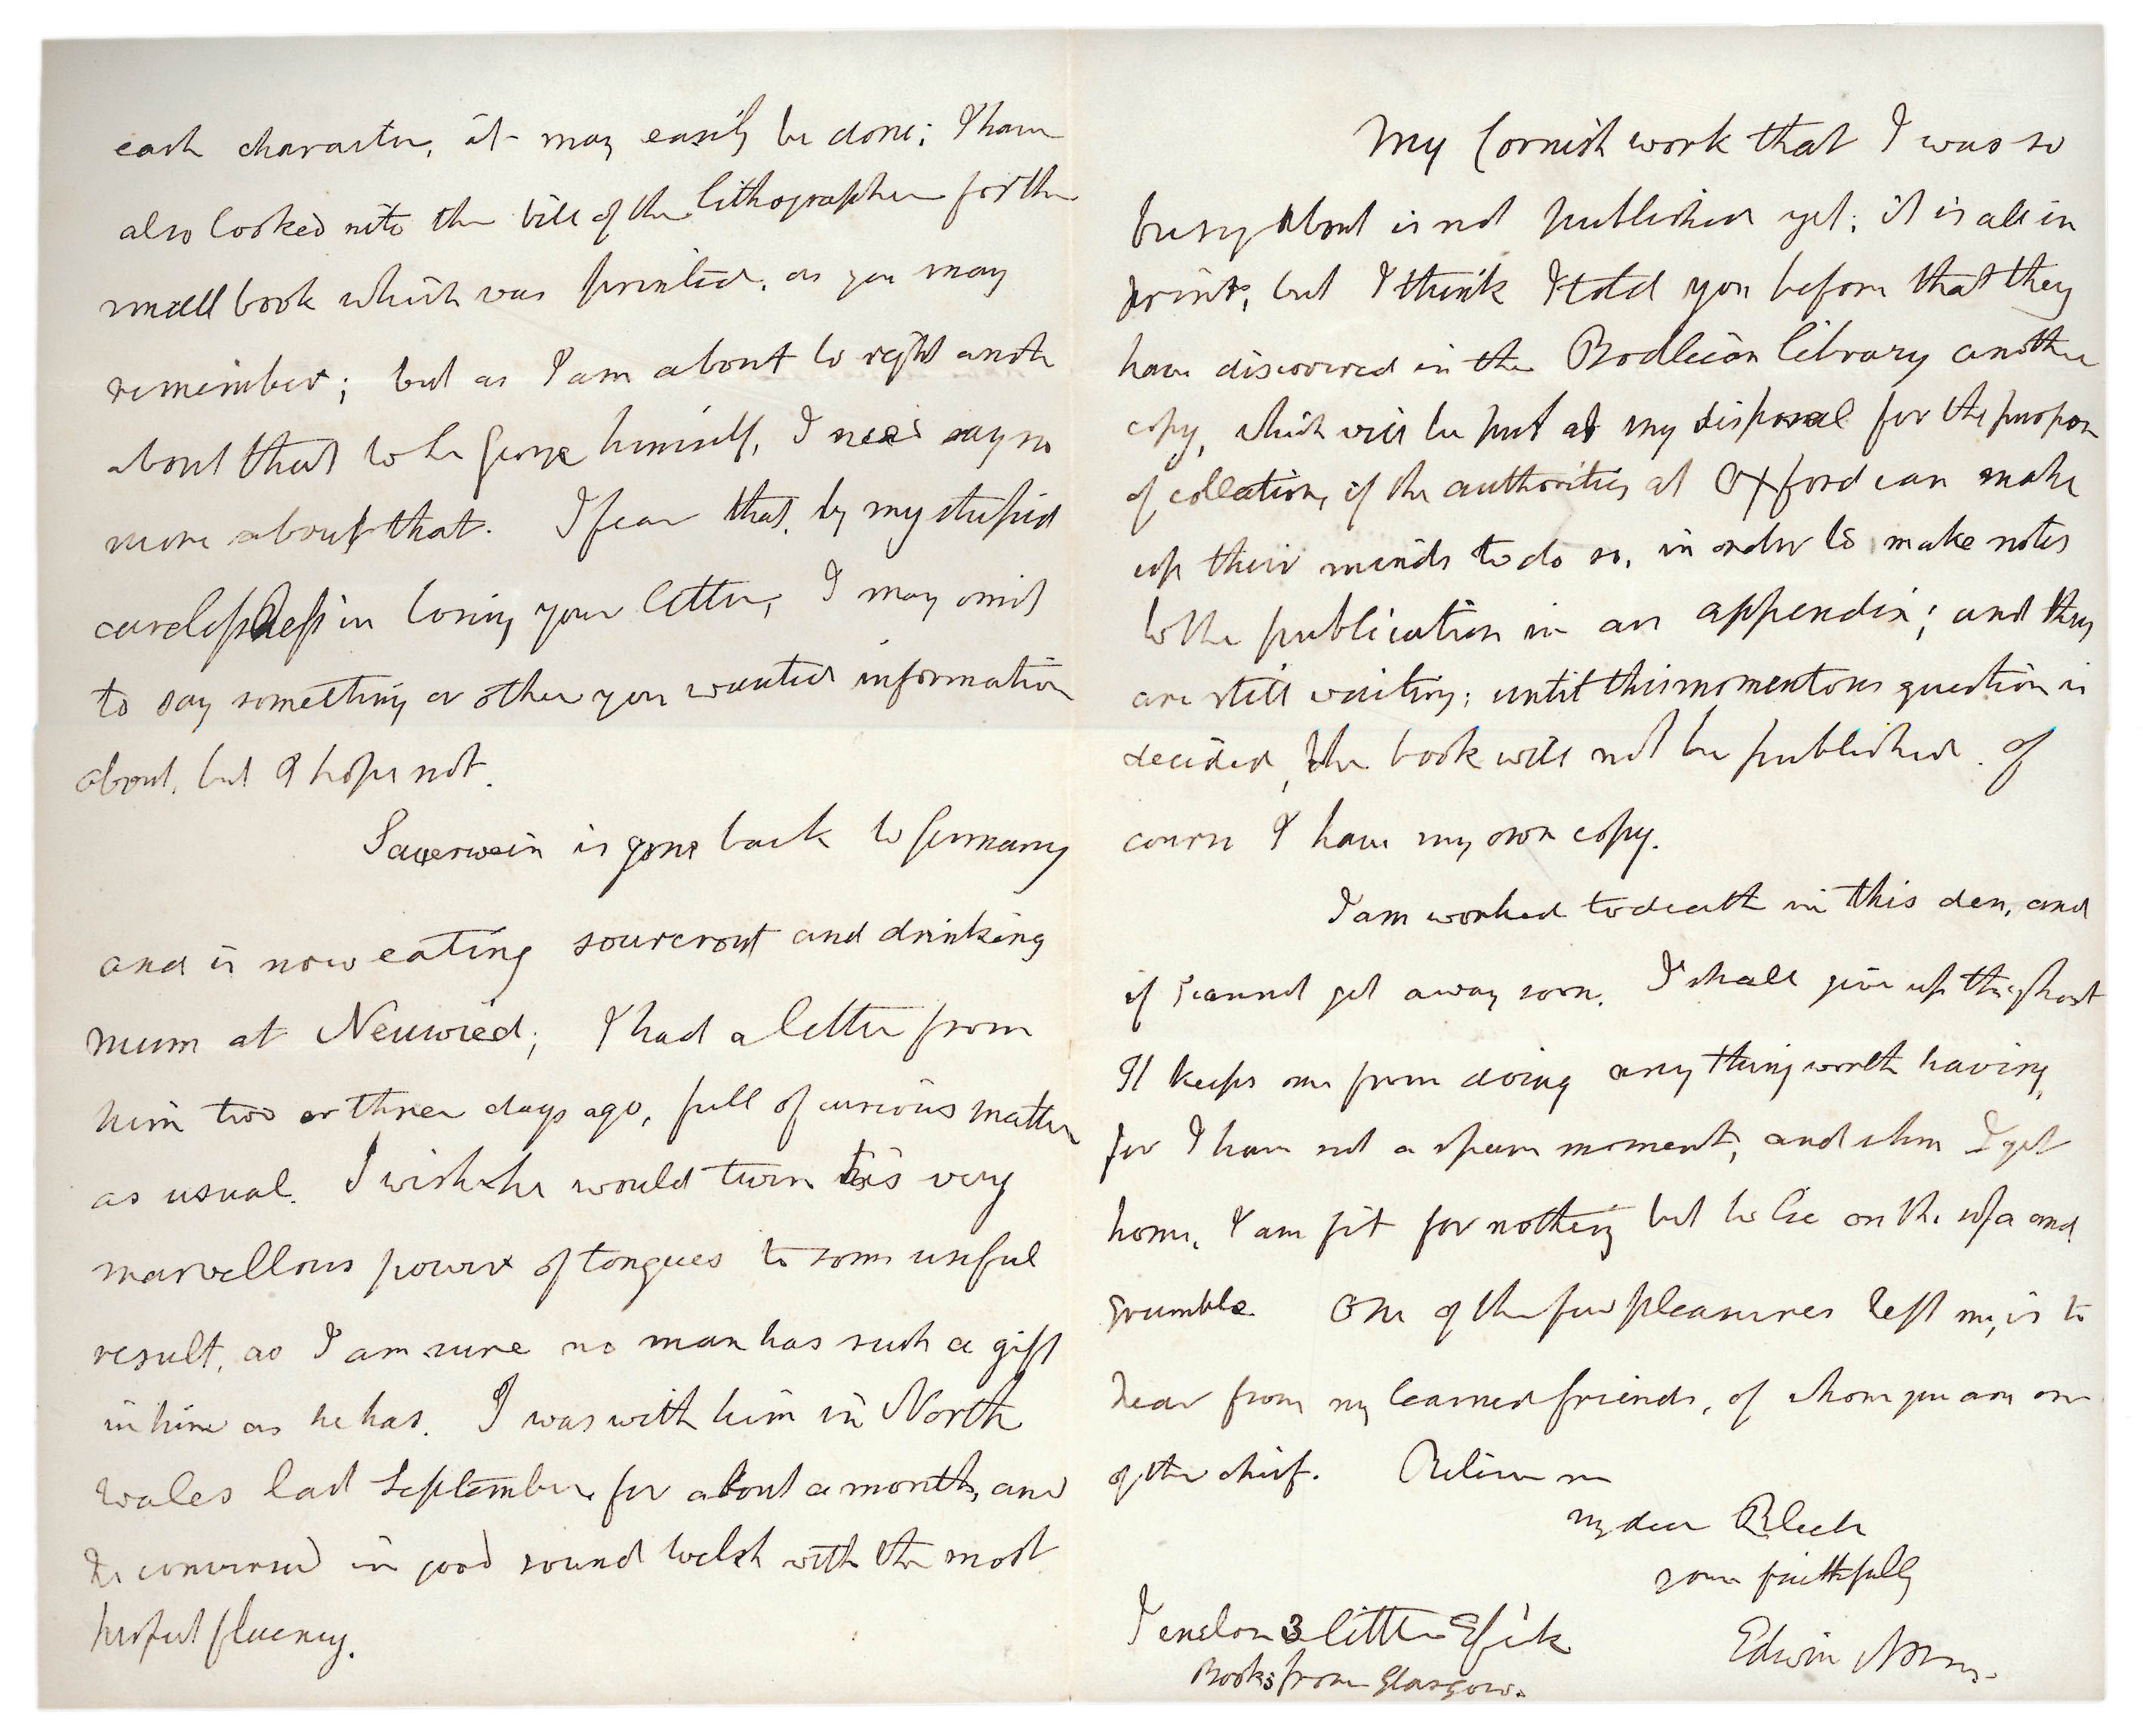 each character, it may easily be done; I have
also looked into the bill of the lithographer for the
small book which was printed, as you may
remember; but as I am about to
about that to George himself, I need say no
more about that. I fear that, by my stupid
carelessness in losing your letter, I may omit
to say something or other you wanted information
about, but I hope not.
Sauerwein is gone back to Germany
and is now eating sourcrout and drinking
mum at Neuwied; I had a letter from
him two or three days ago, full of curious matter
as usual. I wish he would turn his very
marvellous power of tongues to some useful
result, as I am sure no man has such a gift
in him as he has. I was with him in North
Wales last September for about a month, and
he conversed in good sound Welsh with the most
perfect fluency.
My Cornish work that I was so
busy about is not published yet; it is all in
print, but I think I told you before that they
have discovered in the Bodleian library another
copy, which will be put at my disposal for the purpose
of collection, if the authorities at Oxford can make
up their minds to do so, in order to make notes
to the publication in an appendix; and they
are still waiting; until this momentous question is
decided, the book will not be published. Of
course I have my own copy.
I am worked to death in this den, and
if I cannot get away soon, I shall give up the ghost
It keeps me from doing any thing worth having,
for I have not a spare moment; and when I get
home, I am fit for nothing but to lie on the sofa and
grumble. One of the few pleasures left me, is to
hear from my learned friends, of whom you are one
of the chief. Believe me
my dear Bleek
yours faithfully
Edwin Norris
I enclose 3 little Efik
Books from Glasgow.